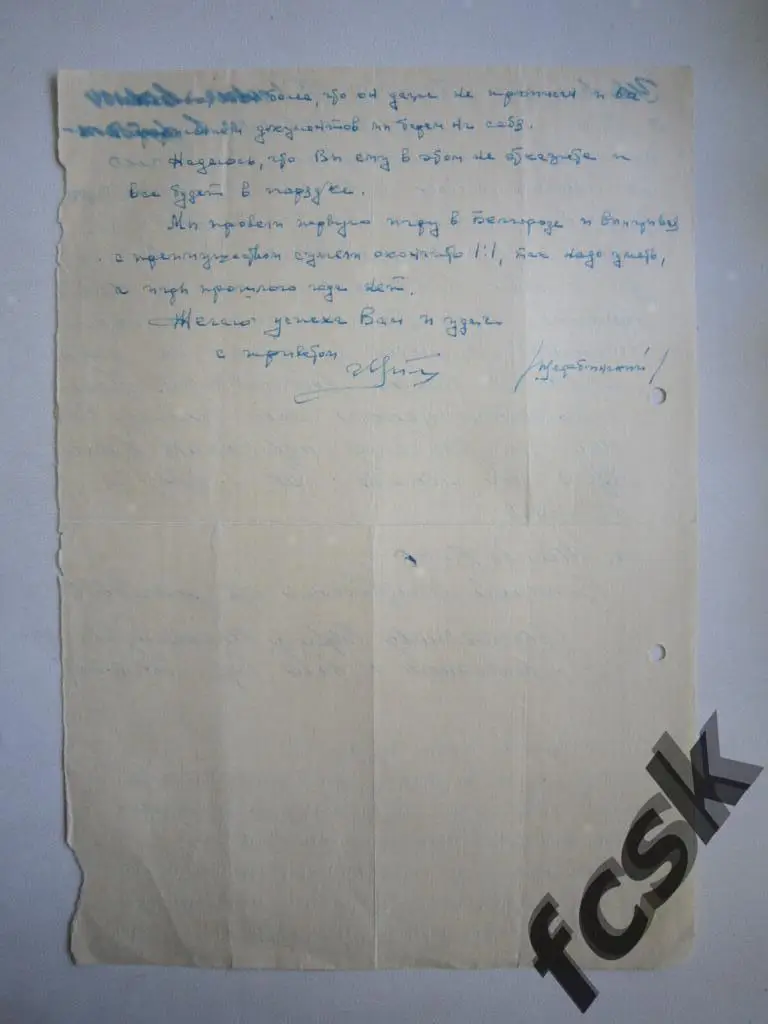 более, что он даже не прописан и вы-
документов мы берем на себя.
Надеюсь, что Вы ему в этом не откажете и
все будет в порядке.
Мы провели первую игру в Белгороде и выигрывая
с преимуществом сумели окончить 1:1, так надо уметь,
а игры прошлого года нет.
Желаю успеха Вам и удачи
с приветом
fcsk